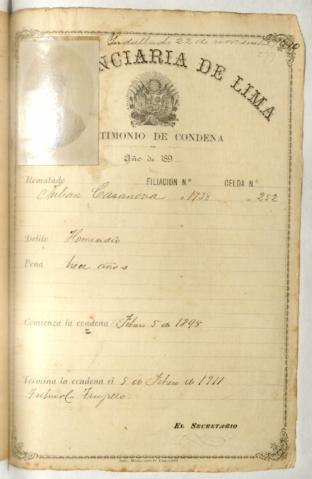 Indultado 22 de
NCIARIA DE LIMA
TIMONIO DE CONDENA
Año de 189
Rematado FILIACION N.º CELDA N.º
Julian Casanova 1738 252
Delito Homicidio
Pena trece años
Comienza la condena Febro 5 de 1898
Termina la condena el 5 de Febro de 1911
Tribunal Trujillo
EL SECRETARIO